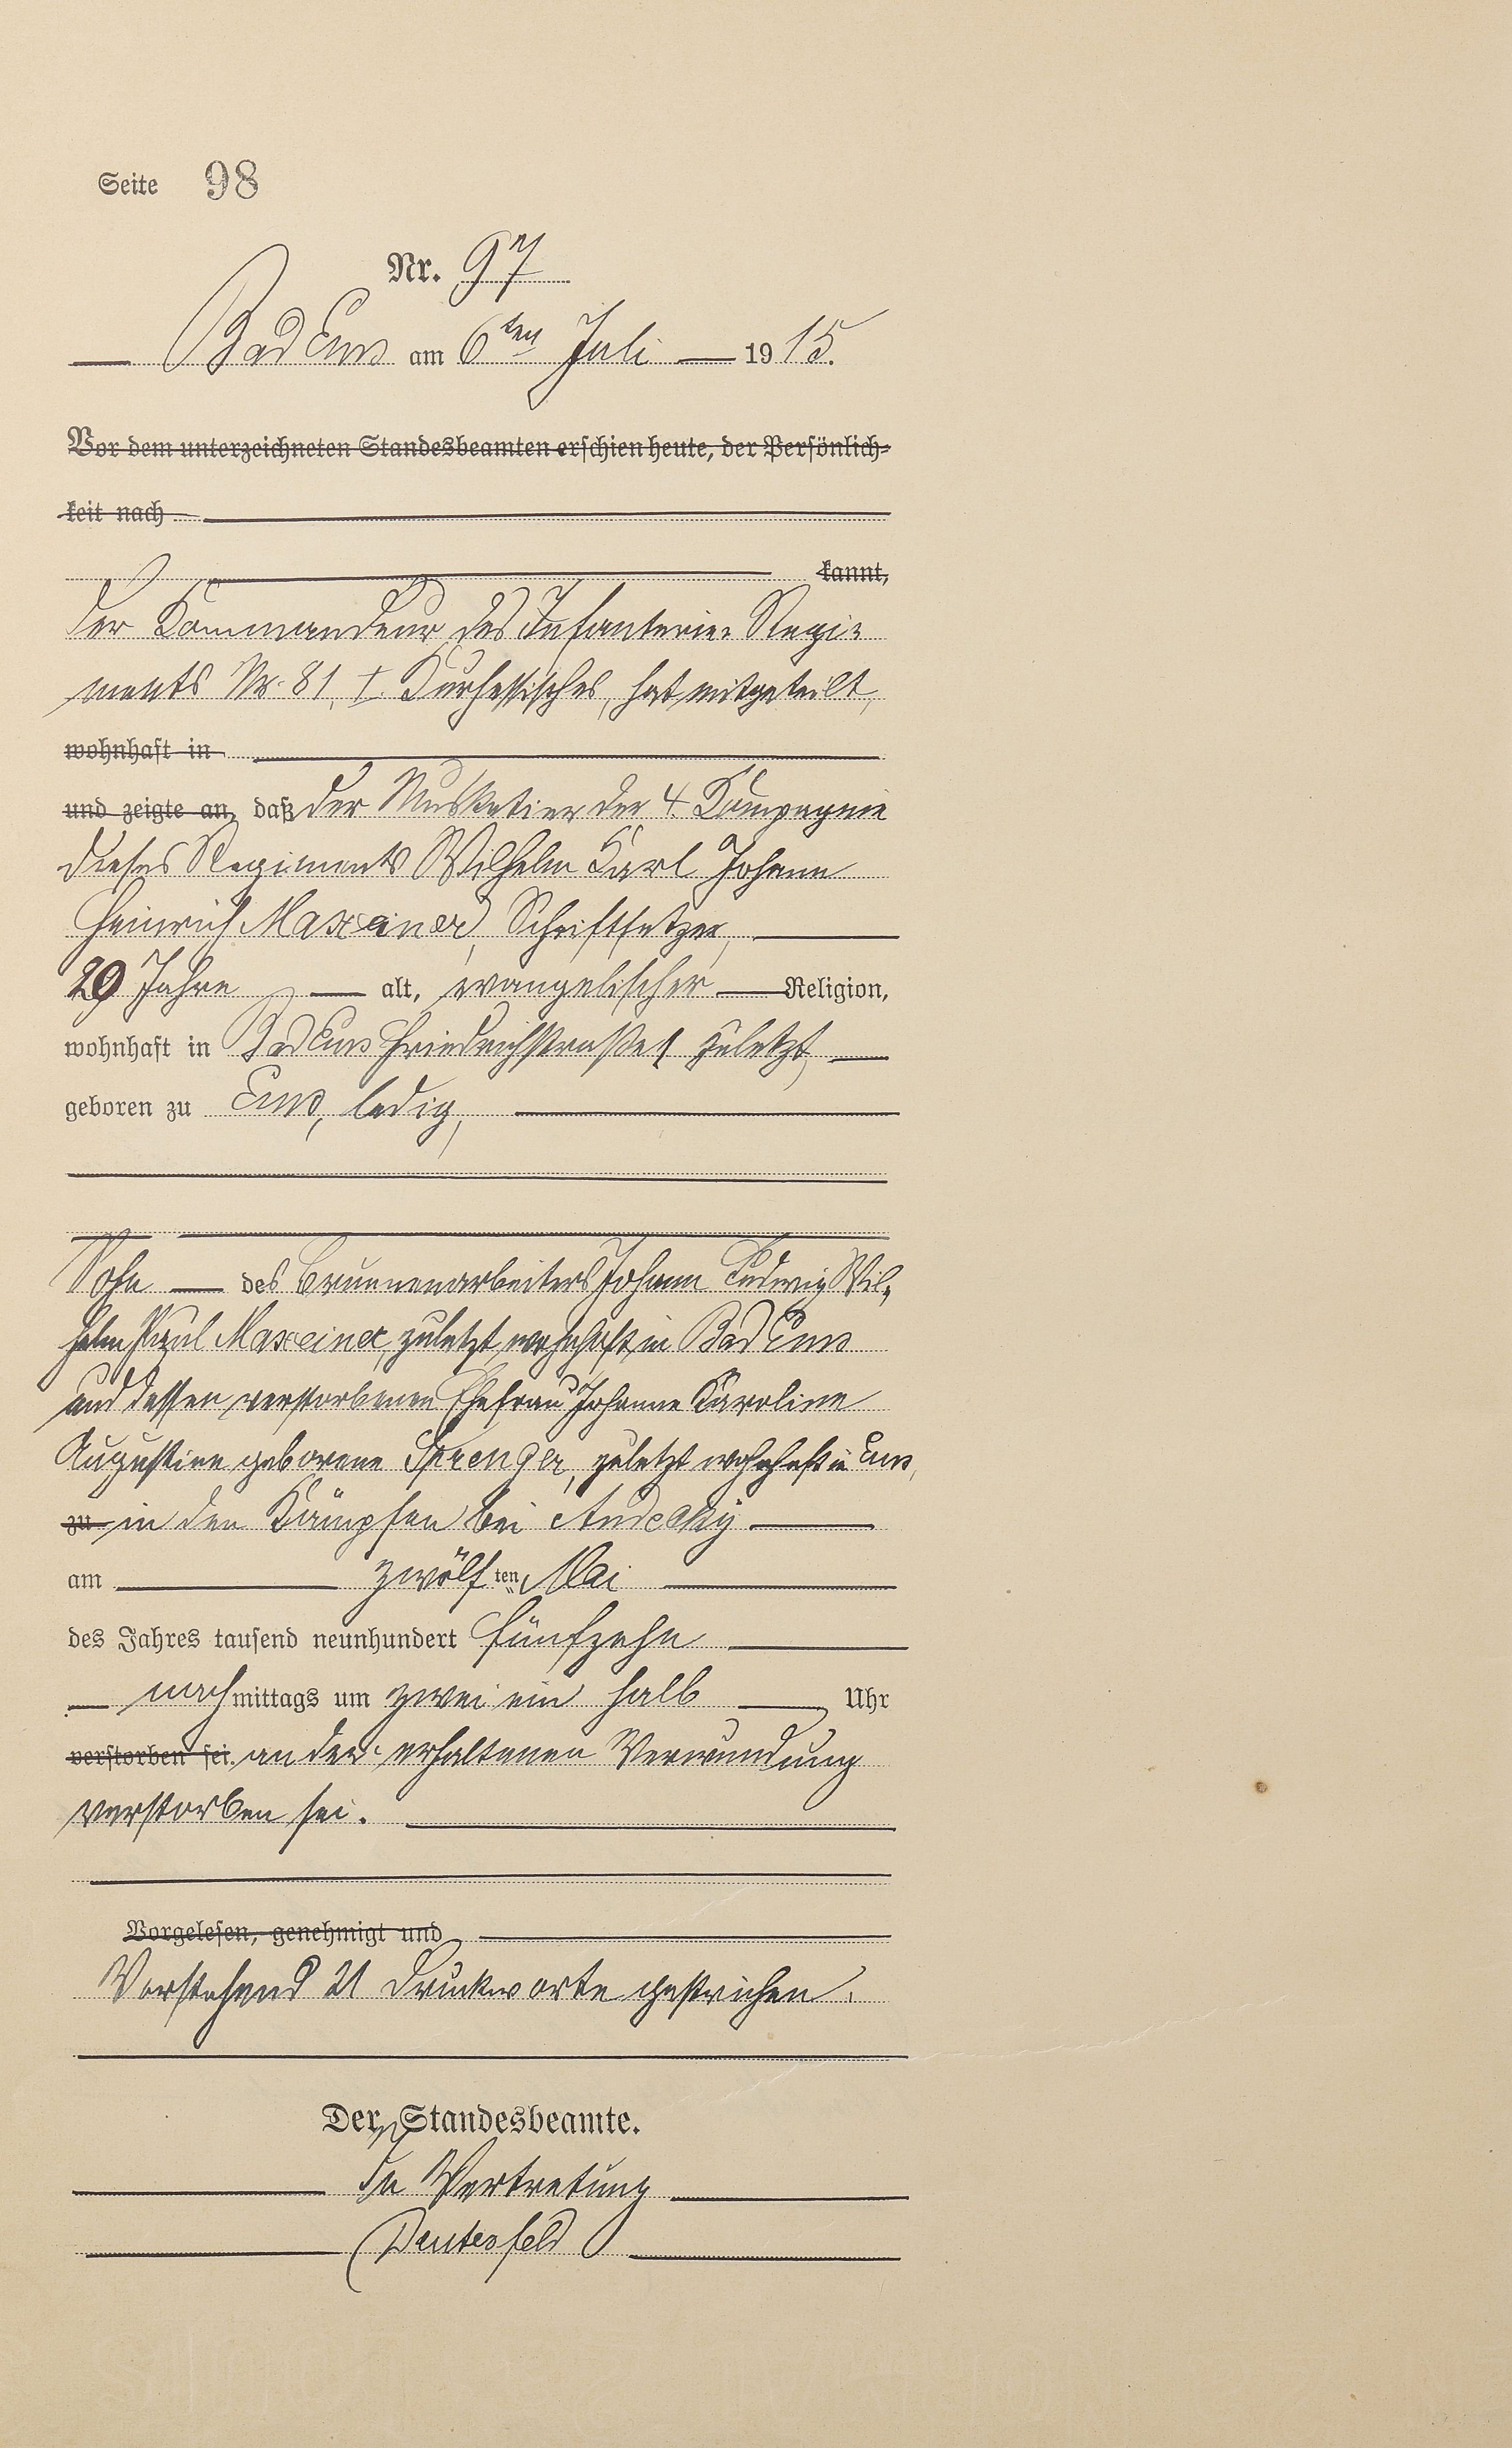 Seite 98
Nr. 97
Bad Ems am 6ten Juli 1915.
Vor dem unterzeichneten Standesbeamten erschien heute, der Persönlich-
keit nach
kannt,
Der Kommandeur des Infanterie-Regi-
ments Nr. 81, I. Kurhessisches, hat mitgeteilt,
wohnhaft in
und zeigte an, daß der Musketier der 4. Kompagnie
dieses Regiments Wilhelm Karl Johann
Heinrich Maxeiner, Schriftsetzer,
29 Jahre alt, evangelischer Religion,
wohnhaft in Bad Ems Friedrichstraße 1 zuletzt,
geboren zu Ems, ledig,
Sohn des Brunnenarbeiters Johann Ludwig Wil-
helm Paul Maxeiner, zuletzt wohnhaft in Bad Ems
und dessen verstorbenen Ehefrau Johanne Karoline
Augustine geborene Sprenger, zuletzt wohnhaft in Ems,
zu in den Kämpfen bei Andechy
am zwölften Mai
des Jahres tausend neunhundert fünfzehn
nachmittags um zwei ein halb Uhr
verstorben sei. an der erhaltenen Verwundung
verstorben sei.
Vorgelesen, genehmigt und
Vorstehend 21 Druckworte gestrichen.
Der Standesbeamte.
In Vertretung